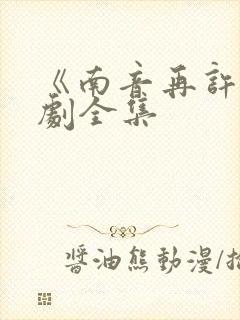 《南音再許
劇全集
醬油熊動漫/拍